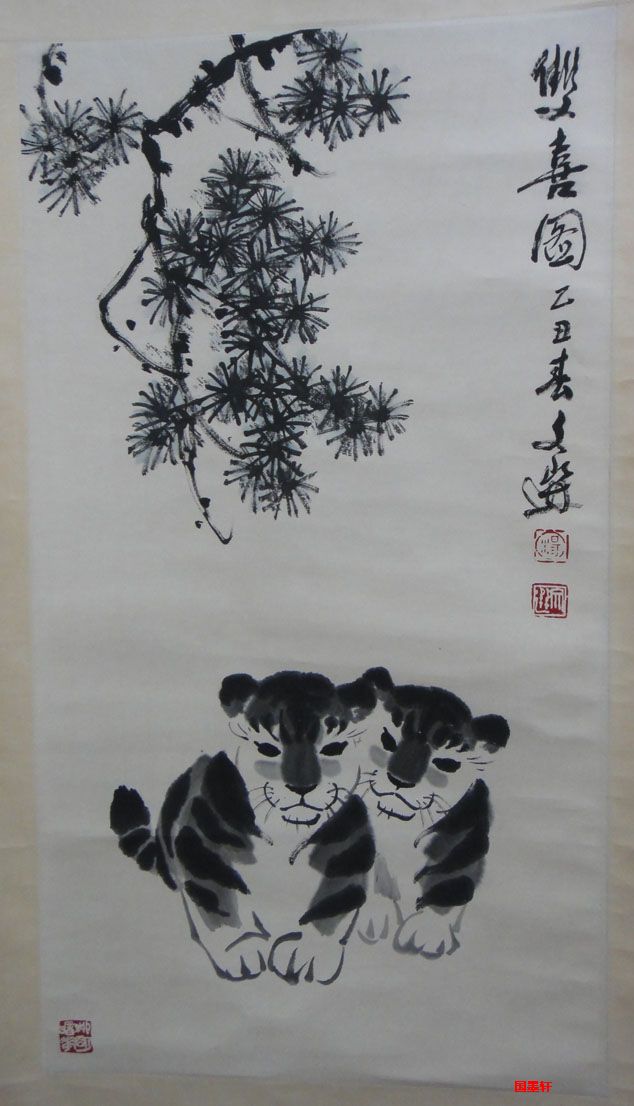 雙喜图乙丑春文選
国墨轩